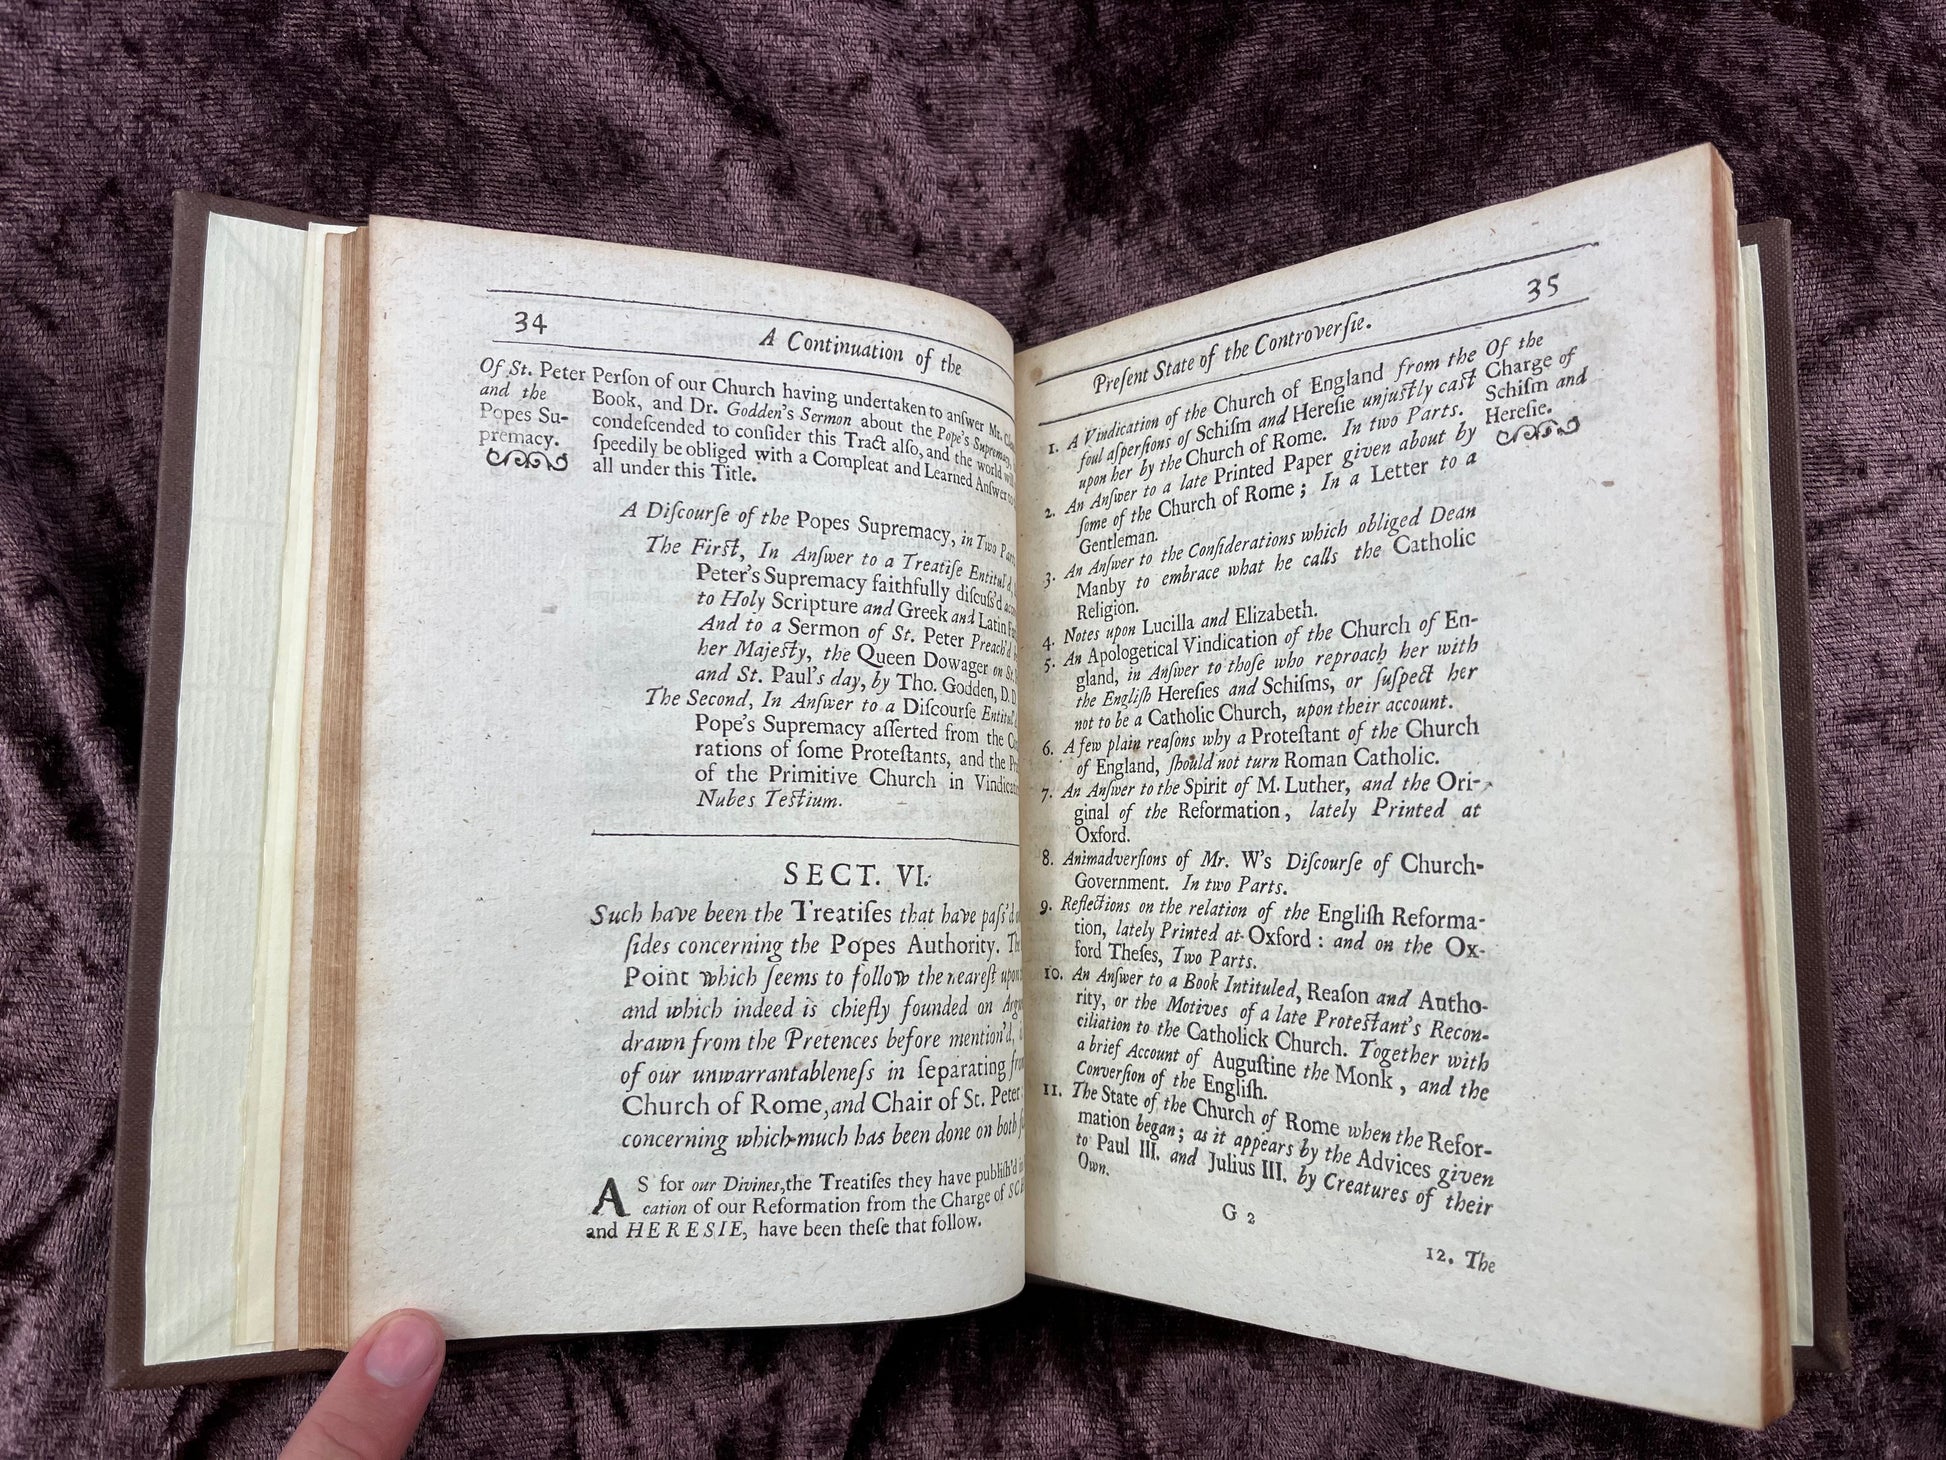 34
A Continuation of the
Of St. Peter
and the
Popes Su-
premacy.
Perſon of our Church having undertaken to anſwer Mr.
Book, and Dr. Godden's Sermon about the Pope's Supremacy,
condeſcended to conſider this Tract alſo, and the world will
ſpeedily be obliged with a Compleat and Learned Anſwer
all under this Title.
A Diſcourſe of the Popes Supremacy, in Two
The Firſt, In Anſwer to a Treatiſe Entitul'd,
Peter's Supremacy faithfully diſcuſs'd
to Holy Scripture and Greek and Latin
And to a Sermon of St. Peter Preach'd
her Majeſty, the Queen Dowager on St.
and St. Paul's day, by Tho. Godden, D.D.
The Second, In Anſwer to a Diſcourſe
Pope's Supremacy aſſerted from the
rations of ſome Proteſtants, and the
of the Primitive Church in
Nubes Teſtium.
SECT. VI.
Such have been the Treatiſes that have paſs'd
ſides concerning the Popes Authority.
Point which ſeems to follow the neareſt
and which indeed is chiefly founded on
drawn from the Pretences before mention'd,
of our unwarrantableneſs in ſeparating
Church of Rome, and Chair of St. Peter
concerning which much has been done on both
AS for our Divines, the Treatiſes they have publiſh'd in
cation of our Reformation from the Charge of
and HERESIE, have been theſe that follow.
Preſent State of the Controverſie.
35
Of the
Charge of
Schiſm and
Hereſie.
1. A Vindication of the Church of England from the
foul aſperſions of Schiſm and Hereſie unjuſtly caſt
upon her by the Church of Rome. In two Parts.
2. An Anſwer to a late Printed Paper given about by
ſome of the Church of Rome; In a Letter to a
Gentleman.
3. An Anſwer to the Conſiderations which obliged Dean
Manby to embrace what he calls the Catholic
Religion.
4. Notes upon Lucilla and Elizabeth.
5. An Apologetical Vindication of the Church of En-
gland, in Anſwer to thoſe who reproach her with
the Engliſh Hereſies and Schiſms, or ſuſpect her
not to be a Catholic Church, upon their account.
6. A few plain reaſons why a Proteſtant of the Church
of England, ſhould not turn Roman Catholic.
7. An Anſwer to the Spirit of M. Luther, and the Ori-
ginal of the Reformation, lately Printed at
Oxford.
8. Animadverſions of Mr. W's Diſcourſe of Church-
Government. In two Parts.
9. Reflections on the relation of the Engliſh Reforma-
tion, lately Printed at Oxford: and on the Ox-
ford Theſes, Two Parts.
10. An Anſwer to a Book Intituled, Reaſon and Autho-
rity, or the Motives of a late Proteſtant's Recon-
ciliation to the Catholick Church. Together with
a brief Account of Auguſtine the Monk, and the
Converſion of the Engliſh.
11. The State of the Church of Rome when the Refor-
mation began; as it appears by the Advices given
to Paul III. and Julius III. by Creatures of their
Own.
G 2
12. The